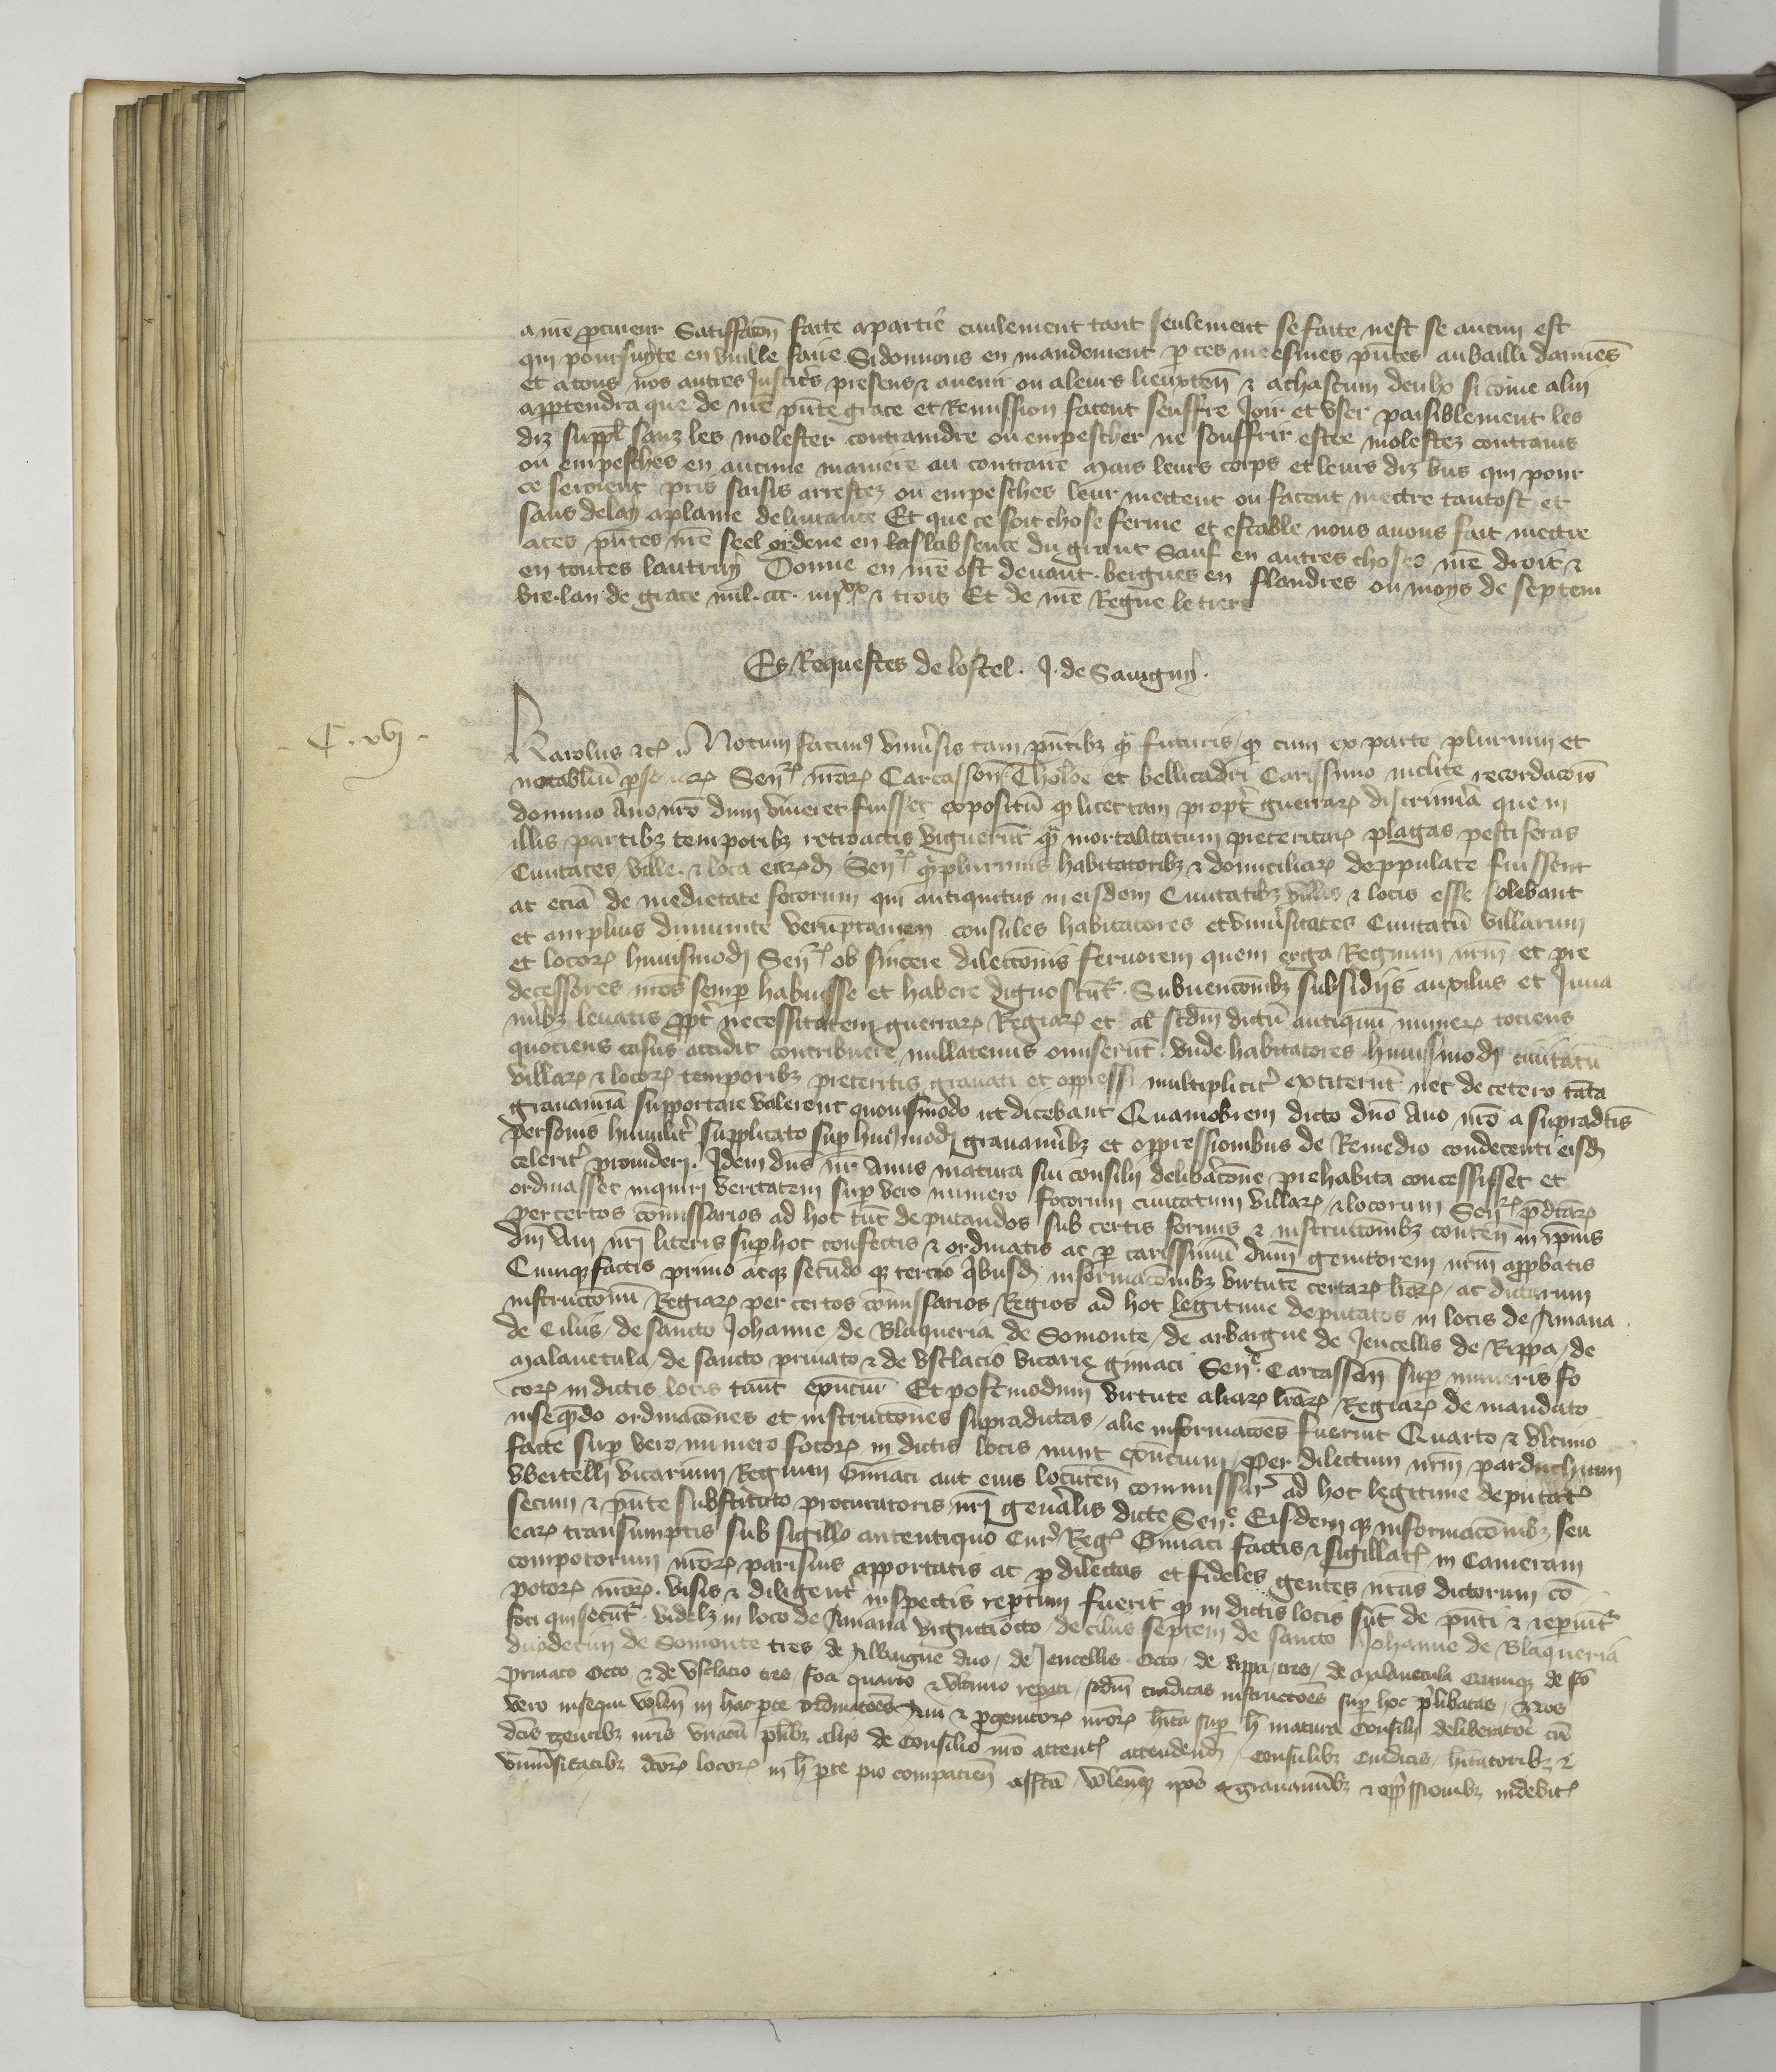 a nr̃e procureur Satiffacōn faite a partie civilement tant seulement se faite nest se aucun est
qui poursuyte en vuille faire. Si donnons en mandement p̱ ces meesmes pñtes au bailli damiẽs
et a tous nos autres Justic̃rs presens ⁊ avenir ou a leurs lieuxteñ ⁊ a chascun deulx si com̃e a lui
appartendra que de nr̃e pñte grace et Remission facent seuffre Joir et user paisiblement les
diz suppl̃ sanz les molester contraindre ou empescher ne souffrir estre molestez contrains
ou empeschés en aucune maniere au contraire Mais leurs corps et leurs diz biẽs qui pour
ce seroient pris saisis arrestez ou empeschés leur mettent ou facent mettre tantost et
sans delay a plaine delivrance Et que ce soit chose ferme et estable nous avons fait mettre
a ces pñtes nr̃e seel ordené en labsence du grant Sauf en autres choses nr̃e droit ⁊
en toutes lautruy Donné en nr̃e ost devant bergues en flandres ou moys de septem
bre. lan de grace mil. ccc. iiijxx ⁊ trois Et de nr̃e Regne le tiers
Es Requestes de lostel. J. de Savigny.
C. xvj
Karolus ⁊c̃ Notum facimꝰ uniṽsis tam pñtibꝫ q̃ futuris, qđ cum ex parte plurium et
notabliũ ꝑsonarꝝ Señ nr̃arꝝ Carcassoñ Tholose et bellicadri Carissimo inclite recordacõis
domino Avo nr̃o dum viveret fuisset expositũ qđ licet tam propt̃ guerrarꝝ discrimĩa que in
illis partibꝫ temporibꝫ retroactis viguerũt q̃ mortalitatum preteritarꝝ plagas pestiferas
Civitates ville ⁊ loca earũđ Señ q̃pluribus habitatoribꝫ ⁊ domiciliarꝝ deppulate fuissent
ac eciã de medietate focorum qui antiquitus in eisdem Civitatibꝫ villis ⁊ locis esse solebant
et amplius diminute verũptamen consules habitatores et uniṽsitates Civitatũ villarum
et locorꝝ huiusmodi Señ ob sincere dilectiõnis fervorem quem erga Regnum nr̃m et pre
decessores nr̃os semꝑ habuisse et habere dignoscũtꝰ. Subvencõnibꝫ subsidiis auxiliis et Juva
minibꝫ levatis ꝓpt̃ necessitatem guerrarꝝ Regiarꝝ et al̃ scd̃m dictũ antiquũ numerꝝ tociens
quociens casus accidit contribuere nullatenus omiserũt. Unde habitatores huiusmodi civitatũ
villarꝝ ⁊ locorꝝ temporibꝫ preteritis gravati et oppressi multiplicit̃ extiterũt nec de cetero tãta
gravamĩa supportare valerent quovismodo ut dicebant Quamobrem dicto dño Avo nr̃o a supradc̃is
personis humilit̃ supplicato suꝑ huiꝰmodi gravamĩbꝫ et oppressionibus de Remedio condecenti eisđ
celerit̃ provideri. Idem dñs nr̃ Avus matura sui consilii delib̃acõne prehabita concessisset et
ordinasset inquiri veritatem suꝑ vero numero focorum civitatum villarꝝ ⁊ locorum Señ p̃dc̃arꝝ
per certos com̃issarios ad hoc tũc deputandos sub certis formis ⁊ instructiõnibꝫ conteñ in ip̃ius
dñi Avi nr̃i literis suꝑ hoc confectis ⁊ ordinatis ac ꝑ carissimũ dñm genitorem nr̃m apꝓbatis
Cumqꝫ factis primo atqꝫ secũdo qꝫ tercio q̃busđ informacõnibꝫ virtute certarꝝ lr̃arꝝ, ac dictarum
instructionũ Regiarꝝ per certos com̃issarios Regios ad hoc legitime deputatos in locis de Amana
de Cilus, de sancto Johanne, de Blaqueria de Somonte, de arbargue de Jencellis de Rippa, de
Malavetula, de sancto privato ⁊ de Usclacio vicarie giniaci Señ Carcassoñ suꝑ numeris fo
corꝝ in dictis locis tañc exñcium Et postmodum virtute aliarꝝ lr̃arꝝ Regiarꝝ de mandato
insequẽdo ordinacõnes et instructiõnes supradictas, alie informacões fuerint Quarto ⁊ ultimo
facte suꝑ vero numero focorꝝ in dictis locis nunc exñcium, Per dilectum nr̃m parduchium
Ubertelli vicarium Regium Giniaci aut eius locũteñ com̃issar̃ ad hoc legitime deputatũ
secum ⁊ pñte substituto procuratoris nr̃i gen̄alis dicte Señ Eisdemqꝫ informacõnibꝫ seu
earꝝ transumptis sub sigillo autentiquo Cur̃ Reg̃ Giniaci factis ⁊ sigillat̃ in Cameram
compotorum nr̃orꝝ parisius apportatis ac ꝑ dilectas et fideles gentes nr̃as dictorum cõ
potorꝝ nr̃orꝝ. visis ⁊ diligent̃ inspectis repertum fuerit qđ in dictis locis sũt de pñti ⁊ reperiũtꝰ
foci qui secũtꝰ. videlꝫ in loco de Amana viginti octo, de cilus septem de sancto Johanne de Blaqueria
duodecim de Somonte tres, de Albaigne duo, de Jencellis octo, de Rippa, tres, de Malavetula Quinqꝫ de sc̃o
Privato Octo ⁊ de Usclacio tres, foci quarto ⁊ ultimo reperti, scd̃m traditas instructões suꝑ hoc p̃libatas, Nos
vero insequi volẽtes in hac ꝑte ordinacões Avi ⁊ ꝓgenitorꝝ nr̃orꝝ h̃ita suꝑ h̃ matura Consilii deliberatõe cũ
dc̃is gentibꝫ nr̃is unacũ pl̃ibꝫ aliis de Consilio nr̃o attent̃ attendendis, Consulibꝫ Sindicis, h̃itatoribꝫ ⁊
uniṽsitatibꝫ dc̃orꝝ locorꝝ in h̃ ꝑte pio compacieñ affectu, volẽtesqꝫ ip̃os a gravamĩbꝫ ⁊ opp̃ssionibꝫ indebit̃